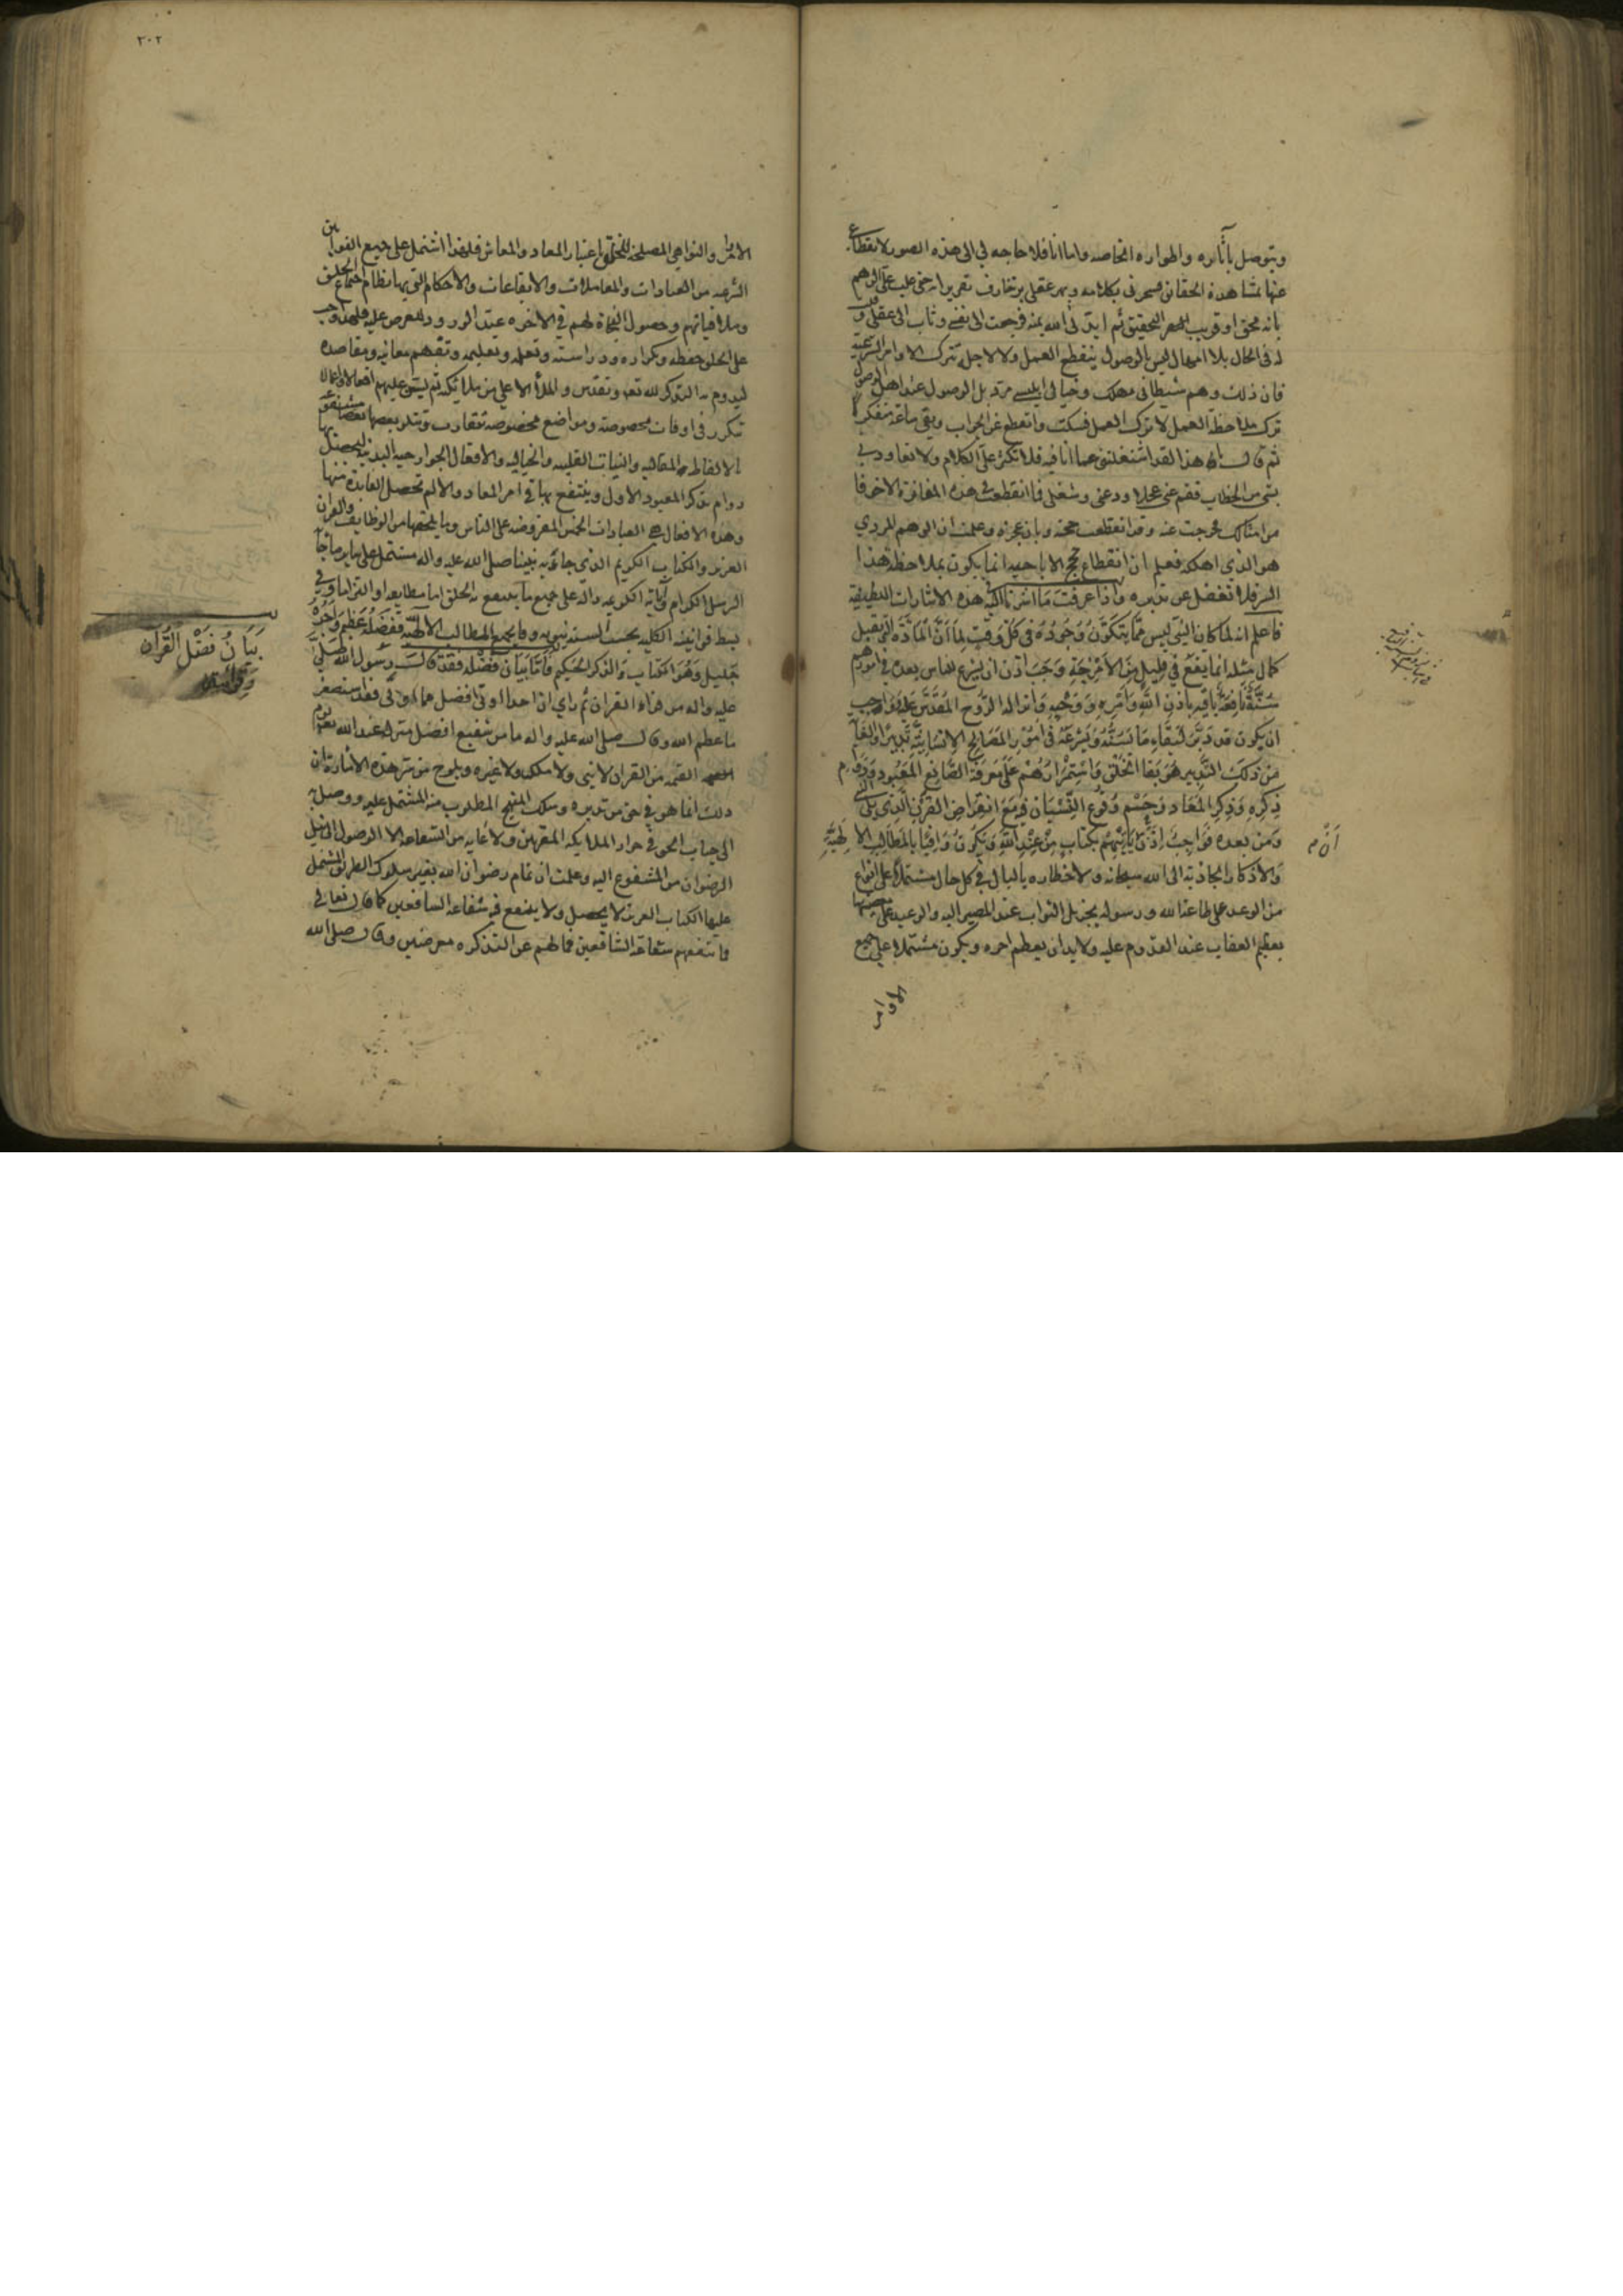 ويتوصل بآثاره والمواره الخاصه واما انا فلا حاجه لي الى هذه الصور لانقطاع
عنها بمشاهدة الحقائق فسحرني بكلامه وبهر عقلي بزخارف تقريرا حتى غلب على الوهم
بانه محق او قريب التحقيق ثم ايدني الله بمنه فرجعت الى نفسي وثاب الى عقلي
في الحال بلا امهال ليس بالوصول ينقطع العمل ولا لاجله تترك الاوامر الشرعية
فان ذلك وهم شيطاني مهلك وخيالي ابليسي مرد بل الوصول عند اهل الوصول
ترك ملاحظة العمل لا ترك العمل فسكت وانقطع عن الجواب وبقي ساعة متفكرا
ثم قال هذا لقد اشتغلتني عما انا فيه فلا تكثر علي الكلام ولا تعاودني
بشي من الخطاب فقم عني عجلا ودعني وشغلي فما انقطعت في هذه المغارة الا خوفا
من امثالك فخرجت عنه وقد انقطعت حجته وبان عجزه وعلمت ان الوهم المردي
هو الذي اهلكه فعلم ان انقطاع حجج الاباحيه انما يكون بملاحظة هذا
السر فلا تغفل عن تدبره واذا عرفت ما اشرنا اليه هذه الاشارات اللطيفة
فاعلم انه لما كان النبي ليس مما يتكون وجوده في كل وقت لما ان المادة التي تقبل
كمال مثله انما يقع في قليل من الامزجة وجب اذن ان يشرع للناس بعده في امورهم
سنة نافعة باقيه باذن الله وامره ووحيه وانزاله الروح المقدس عليه وواجب
ان يكون قد دبر لبقاء ما يسنه ويشرعه في امور المصالح الانسانية تدبيرا والغاية
من ذلك التدبير هو بقا الخلق واستمرارهم على معرفة الصانع المعبود ودوام
ذكره وذكر المعاد وحسم وقوع النسيان فيه مع انقراض القرن الذي يلي النبي
ومن بعده فواجب اذن ان يأتيهم بكتاب من عند الله ويكون وافيا بالمطالب الالهية
والاذكار الجاذبة الى الله سبحانه ولاخطاره بالبال في كل حال مشتملا على انواع
من الوعد على طاعة الله ورسوله بجزيل الثواب عند المصير اليه والوعيد على معصيتهما
بعظيم العقاب عند القدوم عليه ولا بد ان يعظم امره ويكون مشتملا على جميع
الاوامر
٣٠٢
الاوامر والنواهي المصلحة للخلق باعتبار المعاد والمعاش فلهذا اشتمل على جميع القوانين
الشرعيه من العبادات والمعاملات والايقاعات والاحكام التي بها نظام اجتماع الخلق
وملاقياتهم وحصول النجاة لهم في الاخره عند الورود للعرض عليه فلهذا وجب
على الخلق حفظه وتكراره ودراسته وتعلمه وتعليمه وتفهم معانيه ومقاصده
ليدوم به التذكر لله تعالى وتقديس والملأ الاعلى من ملائكته ثم يسن عليهم افعالا واعمالا
تكرر في اوقات مخصوصة ومواضع مخصوصة تتقارب وتتلو بعضها بعضا مشفوعة
بالالفاظ المقاليه والنيات القلبيه والخياليه والافعال الجوارحيه البدنية ليحصل بها
دوام تذكر المعبود الاول وينتفع بها في امر المعاد والا لم تحصل الفايدة منها
وهذه الافعال هي العبادات الخمس المفروضه على الناس وما يلحقها من الوظايف والقرآن
العزيز والكتاب الكريم الذي جاء به نبينا صلى الله عليه واله مشتمل على ساير ما جاء
الرسل الكرام وآياته الكريمه داله على جميع ما ينتفع به الخلق اما مطابقه او التزاما وفي
بسط قوانينه الكليه بحسب السنة نبويه وفا بجميع المطالب الالهية ففضله عظيم واجره
جليل وهو الكتاب والذكر الحكيم فاما بيان فضله فقد قال رسول الله صلى
عليه واله من قرأ القران ثم راى ان احدا اوتي افضل مما اوتي فقد استصغر
ما عظم الله وقال صلى الله عليه واله ما من شفيع افضل منزلة عند الله يوم
القيمه من القران لا نبي ولا ملك ولا غيره ويلوح من سر هذه الاشارة ان
ذلك انما هو في حق من تدبره وسلك المنهج المطلوب منه المشتمل عليه ووصل به
الى جناب الحق في جوار الملائكه المقربين ولا غايه من الشفاعه الا الوصول الى نيل
الرضوان من المشفوع اليه وعلمت ان تمام رضوان الله بغير سلوك الطريق المشتمل
عليها الكتاب العزيز لا يحصل ولا ينفع فيه شفاعه الشافعين كما قال تعالى
فما تنفعهم شفاعة الشافعين فما لهم عن التذكره معرضين وقال صلى الله
بيان فضل القرآن